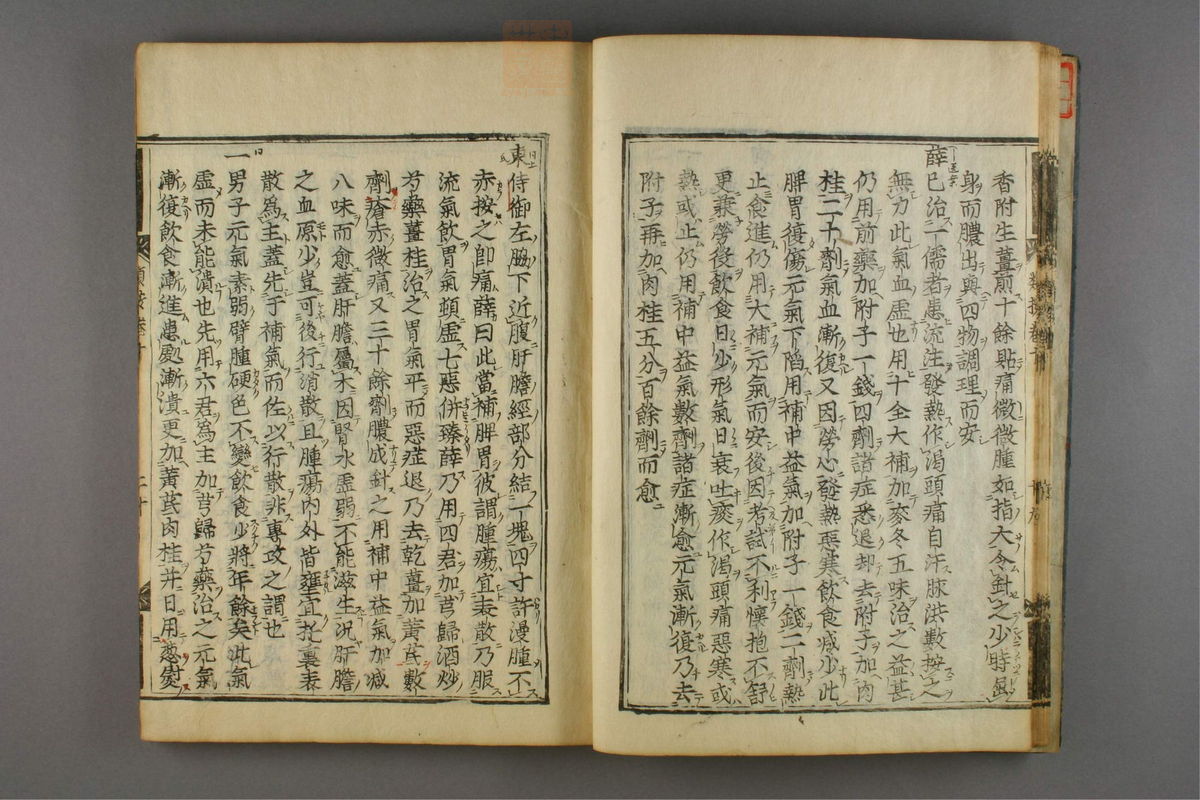 香附生薑煎十餘貼痛微微腫如指大令針之少時
身而膿出與四物調理而安
薛己治一儒者患流注發熱作渴頭痛自汗脉洪數按之
無力此氣血虛也用十全大補加麥冬五味治之益甚
仍用前藥加附子一錢四劑諸症悉退却去附子加肉
桂二十劑氣血漸復又因勞心發熱惡寒飲食減少此
脾胃復傷元氣下陷用補中益氣加附子一錢二劑熱
止食進仍用大補元氣而安後因考試不利懷抱不舒
更兼勞役飲食日少形氣日衰吐痰作渴頭痛惡寒或
熱或止仍用補中益氣數劑諸症漸愈元氣漸復乃去
附子再加肉桂五分百餘劑而愈
東侍御左脇下近腹肝膽經部分結一塊四寸許漫腫不
赤按之即痛薛曰此當補脾胃彼謂腫瘍宜表散乃服
流氣飲胃氣頓虛七惡併臻薛乃用四君加芎歸酒炒
芍藥薑桂治之胃氣平而惡症退乃去乾薑加黃芪數
劑瘡赤微痛又三十餘劑膿成針之用補中益氣加減
八味而愈蓋肝膽屬木因腎水虛弱不能滋生況肝膽
之血原少豈可後行消散且腫瘍內外皆壅宜托裏表
散為主蓋先于補氣而佐以行散非專攻之謂也
一男子元氣素弱臂腫硬色不變飲食少將年餘矣此氣
虛而未能潰也先用六君為主加芎歸芍藥治之元氣
漸復飲食漸進患處漸潰更加黃芪肉桂并日用葱熨